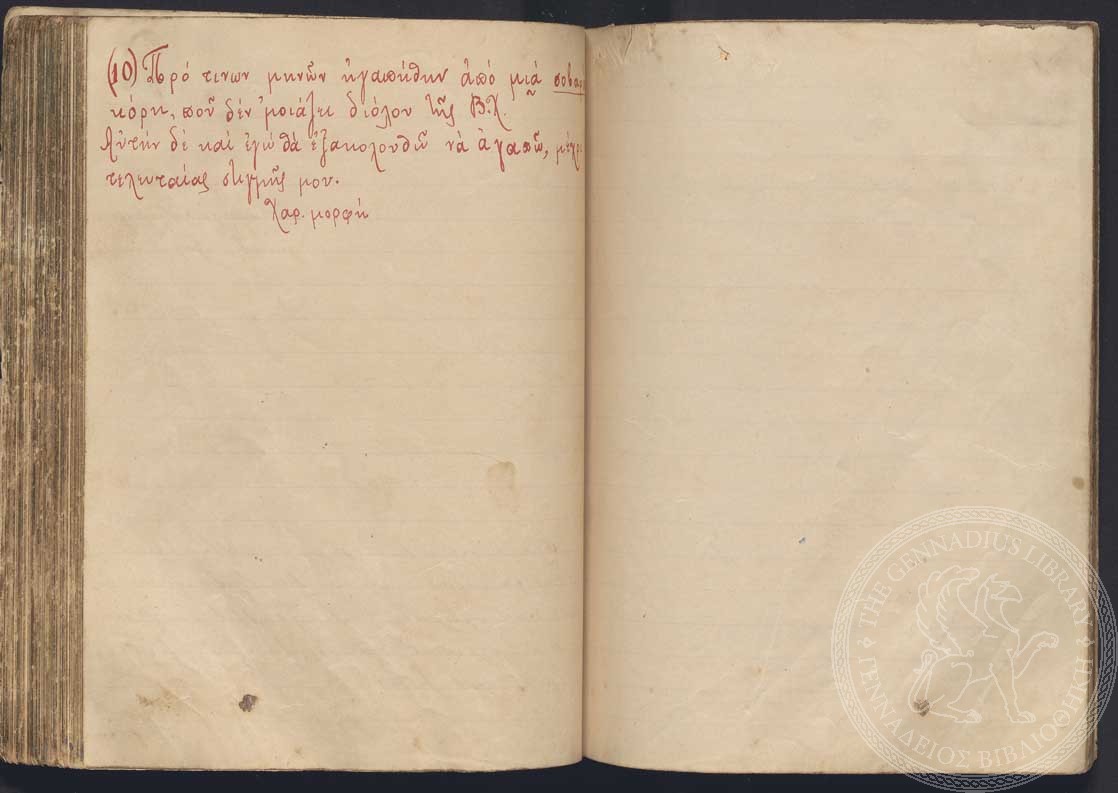 (10) Πρό τινων μηνῶν ἠγαπήθην ἀπό μιά σοβαρ
κόρη, ποῦ δέν 'μοιάζει διόλου τῆς Β.Χ.
Αὐτήν δέ καί ἐγώ θά ἐξακολουθῶ νά ἀγαπῶ, μέχρι
τελευταίας στιγμῆς μου.
Χαρ. μορφή
THE GENNADIUS LIBRARY
ΓΕΝΝΑΔΕΙΟΣ ΒΙΒΛΙΟΘΗΚΗ